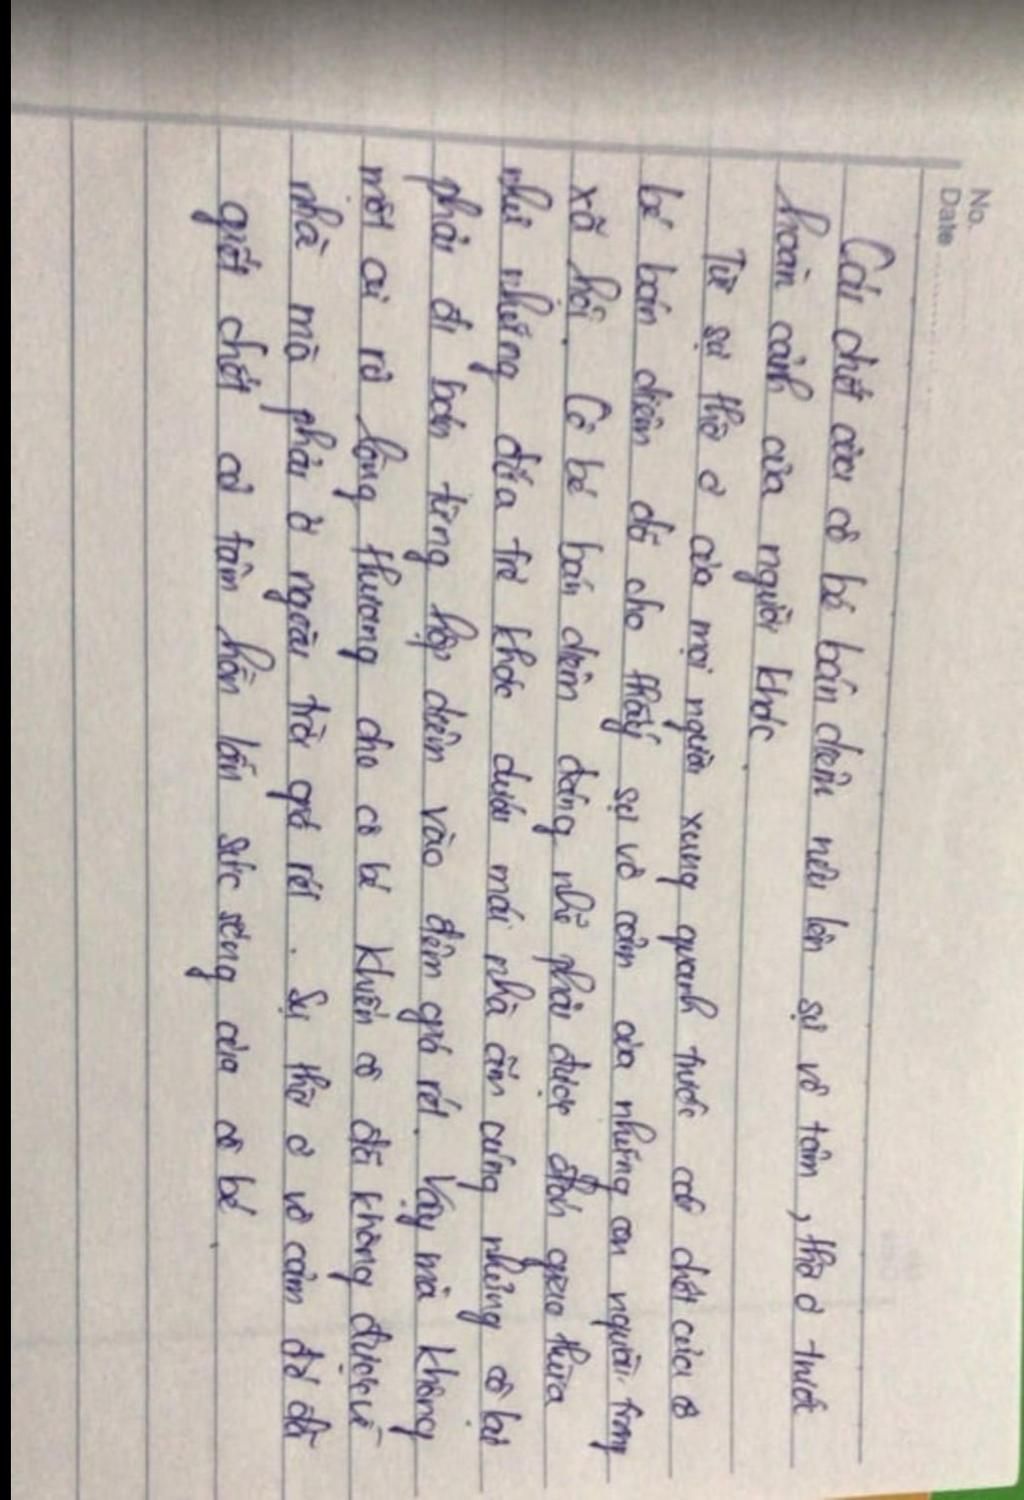 No.
Date
Cái chết của cô bé bán diêm nêu lên sự vô tâm, thờ ơ trước
hoàn cảnh của người khác.
Từ sự thờ ơ của mọi người xung quanh trước cái chết của cô
bé bán diêm đã cho thấy sự vô cảm của những con người trong
xã hội. Cô bé bán diêm đáng nhẽ phải được đón giao thừa
như những đứa trẻ khác dưới mái nhà ấm cúng nhưng cô lại
phải đi bán từng hộp diêm vào đêm giá rét. Vậy mà không
một ai rủ lòng thương cho cô bé khiến cô đã không được về
nhà mà phải ở ngoài trời giá rét. Sự thờ ơ vô cảm đó đã
giết chết cả tâm hồn lẫn sức sống của cô bé.